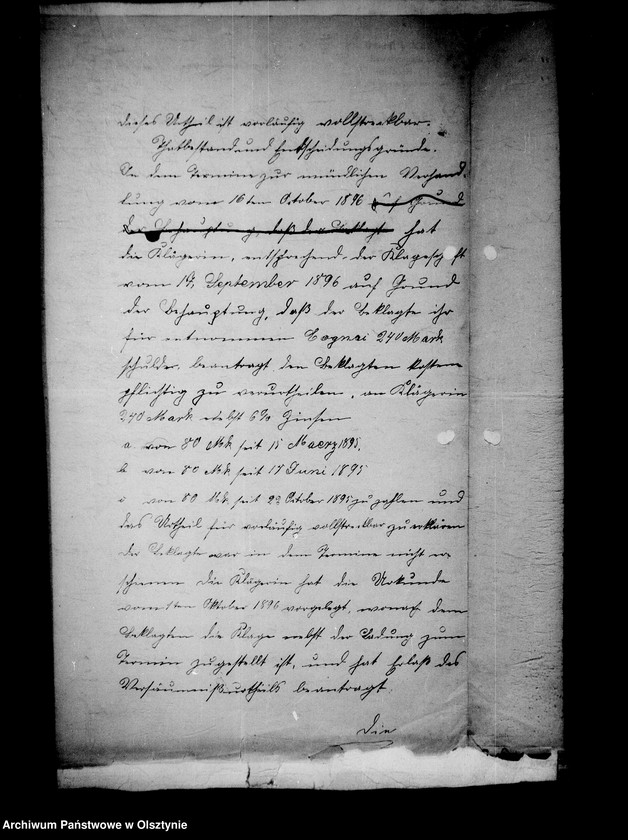 dieses Urtheil ist vorläufig vollstreckbar.
Thatbestand und Entscheidungsgründe.
In dem Termine zur mündlichen Verhand-
lung vom 16ten October 1896 auf Grund
der Behauptung, daß der Beklagte hat
die Klägerin, entsprechend der Klageschrift
vom 14. September 1896 auf Grund
der Behauptung, daß der Beklagte ihr
für entnommen Cognac 240 Mark
schulde, beantragt den Beklagten kosten
pflichtig zu verurtheilen, an Klägerin
240 Mark nebst 6% Zinsen
a. von 80 Mk seit 15 Maerz 1895,
b von 80 Mk seit 17 Juni 1895
c von 80 Mk seit 22 October 1895 zu zahlen und
das Urtheil für vorläufig vollstreckbar zu erklären
Der Beklagte war in dem Termine nicht er
schienen Die Klägerin hat die Urkunde
vom 1ten Oktober 1896 vorgelegt, wonach dem
Beklagten die Klage nebst der Ladung zum
Termin zugestellt ist, und hat Erlaß des
Versäumnißurtheils beantragt.
Die
Archiwum Państwowe w Olsztynie